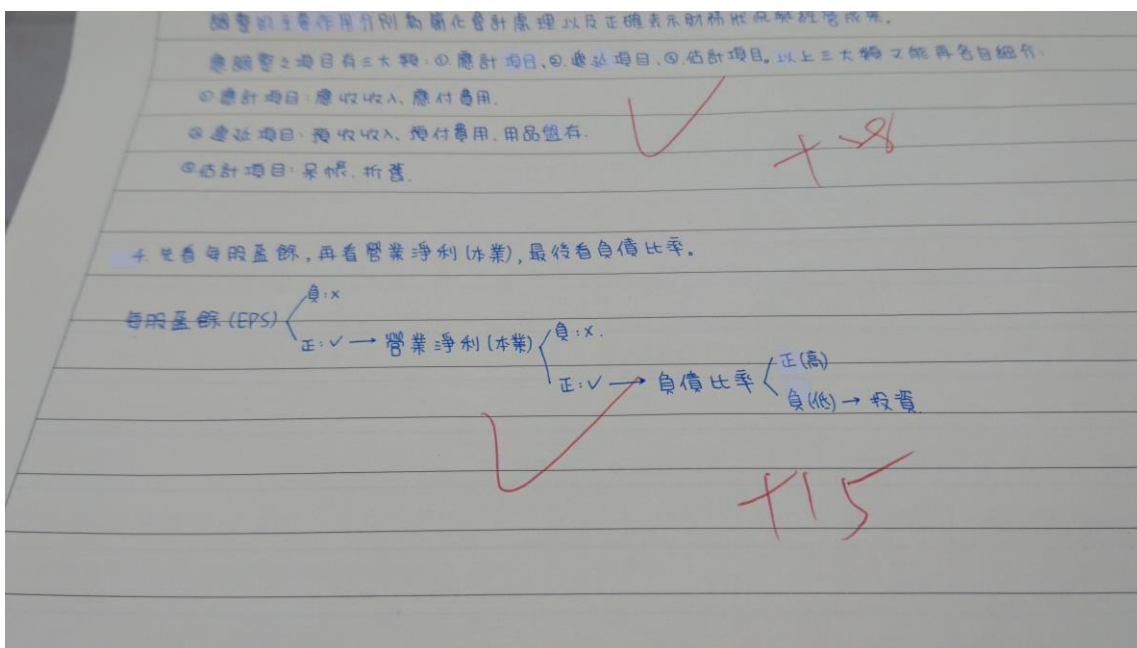 調整的主要作用分別為簡化會計處理以及正確表示財務狀況與經營成果。
應調整之項目有三大類:①應計項目、②遞延項目、③估計項目。以上三大類又能再各自細分.
①應計項目:應收收入、應付費用.
②遞延項目:預收收入、預付費用、用品盤存.
③估計項目:呆帳、折舊.
+28
4. 先看每股盈餘,再看營業淨利(本業),最後看負債比率。
每股盈餘(EPS)
負:x
正:✓→營業淨利(本業)
負:x.
正:✓→負債比率
正(高)
負(低)→投資
+15